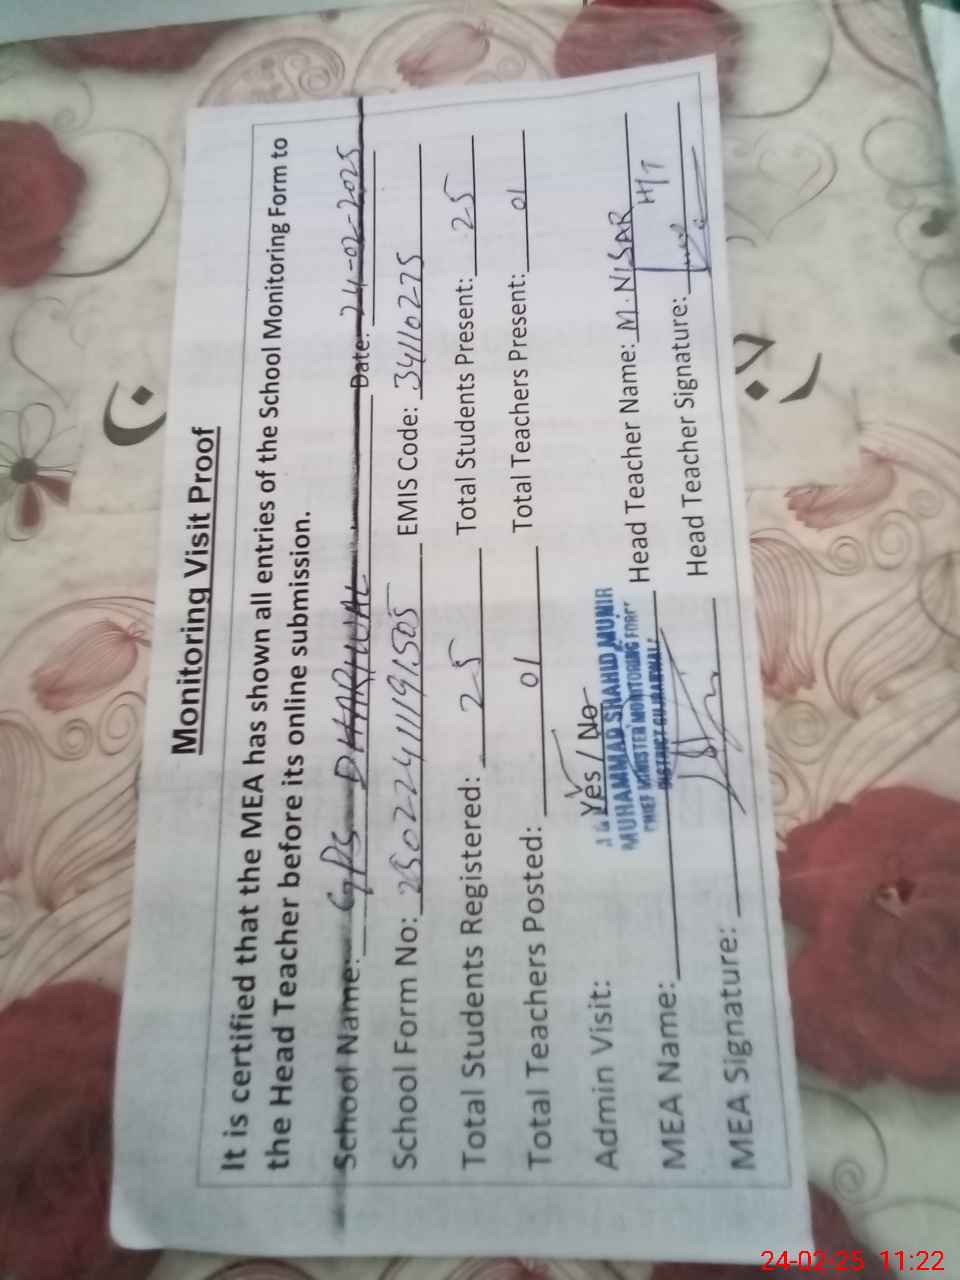 Monitoring Visit Proof
It is certified that the MEA has shown all entries of the School Monitoring Form to
the Head Teacher before its online submission.
School Name: GPS DHARIWAL Date: 24-02-2025
School Form No: EMIS Code: 34110275
Total Students Registered: 25 Total Students Present: 25
Total Teachers Posted: 01 Total Teachers Present: 01
Admin Visit: Yes / No
MUHAMMAD SHAHID MUNIR
CHIEF MINISTER MONITORING FORCE
DISTRICT GUJRANWALA
MEA Name: Head Teacher Name: M. NISAR
H/T
MEA Signature: Head Teacher Signature:
24-02-25 11:22